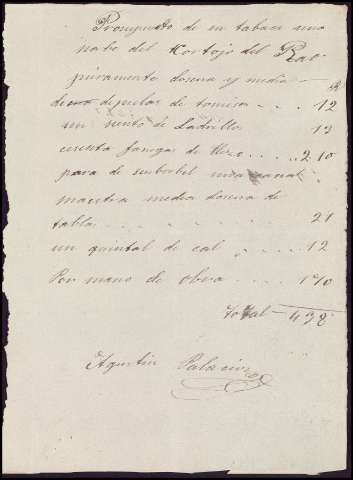 Presupuesto de en tabacar una
nabe del Cortojo del Rao
primeramente dosena y media
de pelas de tomisa . . . 12
un siento de Ladrillos 13
cuenta fanegas de Yezo . . . . 210
para de
maestra media dosena de
tablas . . . . . . 21
un quintal de cal . . . . 12
Por mano de obra . . . . 170
Total — 438
Agustin Palacios